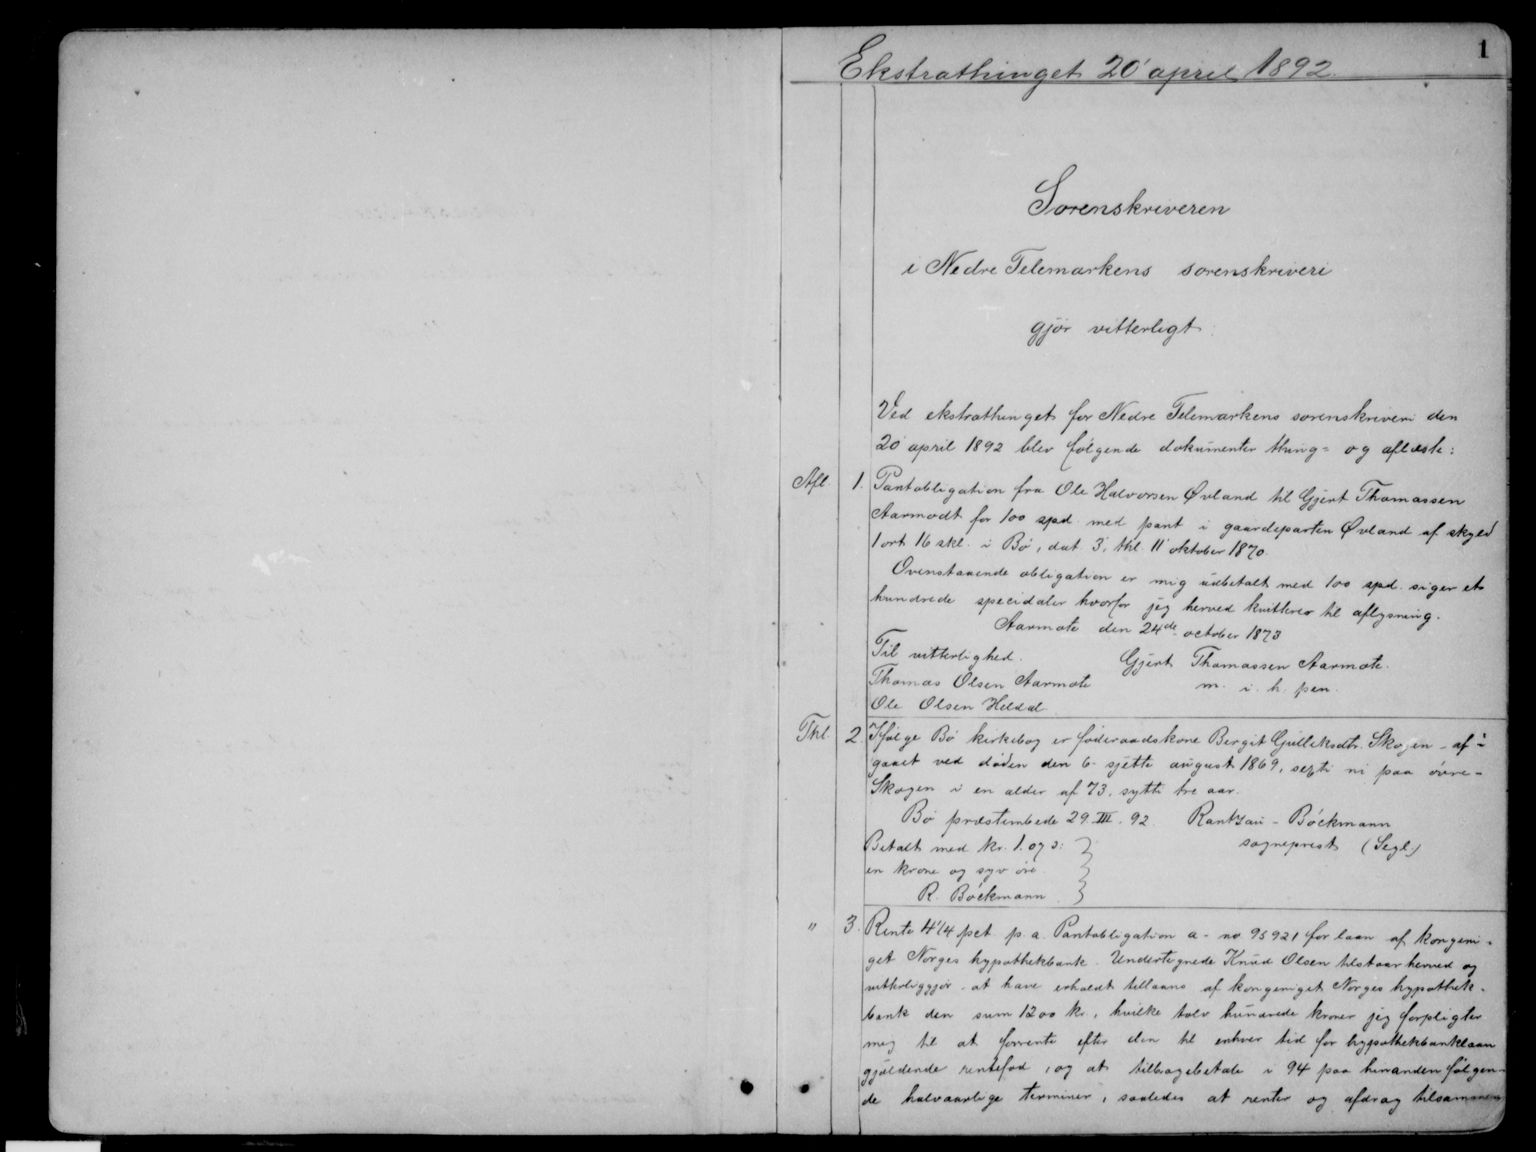 1
Ekstrathinget 20' april 1892.
Sorenskriveren
i Nedre Telemarkens sorenskriveri
gjør vitterligt:
Ved ekstrathinget for Nedre Telemarkens sorenskriveri den
20' april 1892 blev følgende dokumenter thing= og aflæste:
Afl. 1. Pantobligation fra Ole Halvorsen Øvland til Gjert Thomassen
Aarmodt for 100 spd. med pant i gaardeparten Øvland af skyld
1 ort 16 skl. i Bø, dat. 3', thl. 11' oktober 1870.
Ovenstaaende obligation er mig udbetalt med 100 spd. siger et
hundrede specidaler hvorfor jeg herved kvitterer til aflysning.
Aarmote den 24de october 1873
Til vitterlighed. Gjert Thomassen Aarmote.
Thomas Olsen Aarmote m. i. h. pen.
Ole Olsen Heldal
Thl. 2. Ifølge Bø kirkebog er føderaadskone Bergit Gulleksdtr. Skogen - af-
gaaet ved døden den 6- sjette august 1869, sexti ni paa øvre-
Skogen i en alder af 73, sytti tre aar.
Bø præstembede 29. III. 92. Rantzau - Bóckmann
Betalt med kr. 1. 07 ɔ: sogneprest (Segl)
en krone og syv øre
R. Bóckmann
" 3. Rente 4 1/4 pct. p. a. Pantobligation a - no 95921 for laan af kongeri-
get Norges hypothekbank. Undertegnede Knud Olsen tilstaar herved og
vitterliggjør - at have erholdt tillaans af kongeriget Norges hypothek-
bank den sum 1200 kr., hvilke tolv hundrede kroner jeg forpligter
mig til at forrente efter den til enhver tid for hypothekbanklaan
gjældende rentefod, og at tilbagebetale i 94 paa hinanden følgen-
de halvaarlige terminer, saaledes at renter og afdrag tilsammen